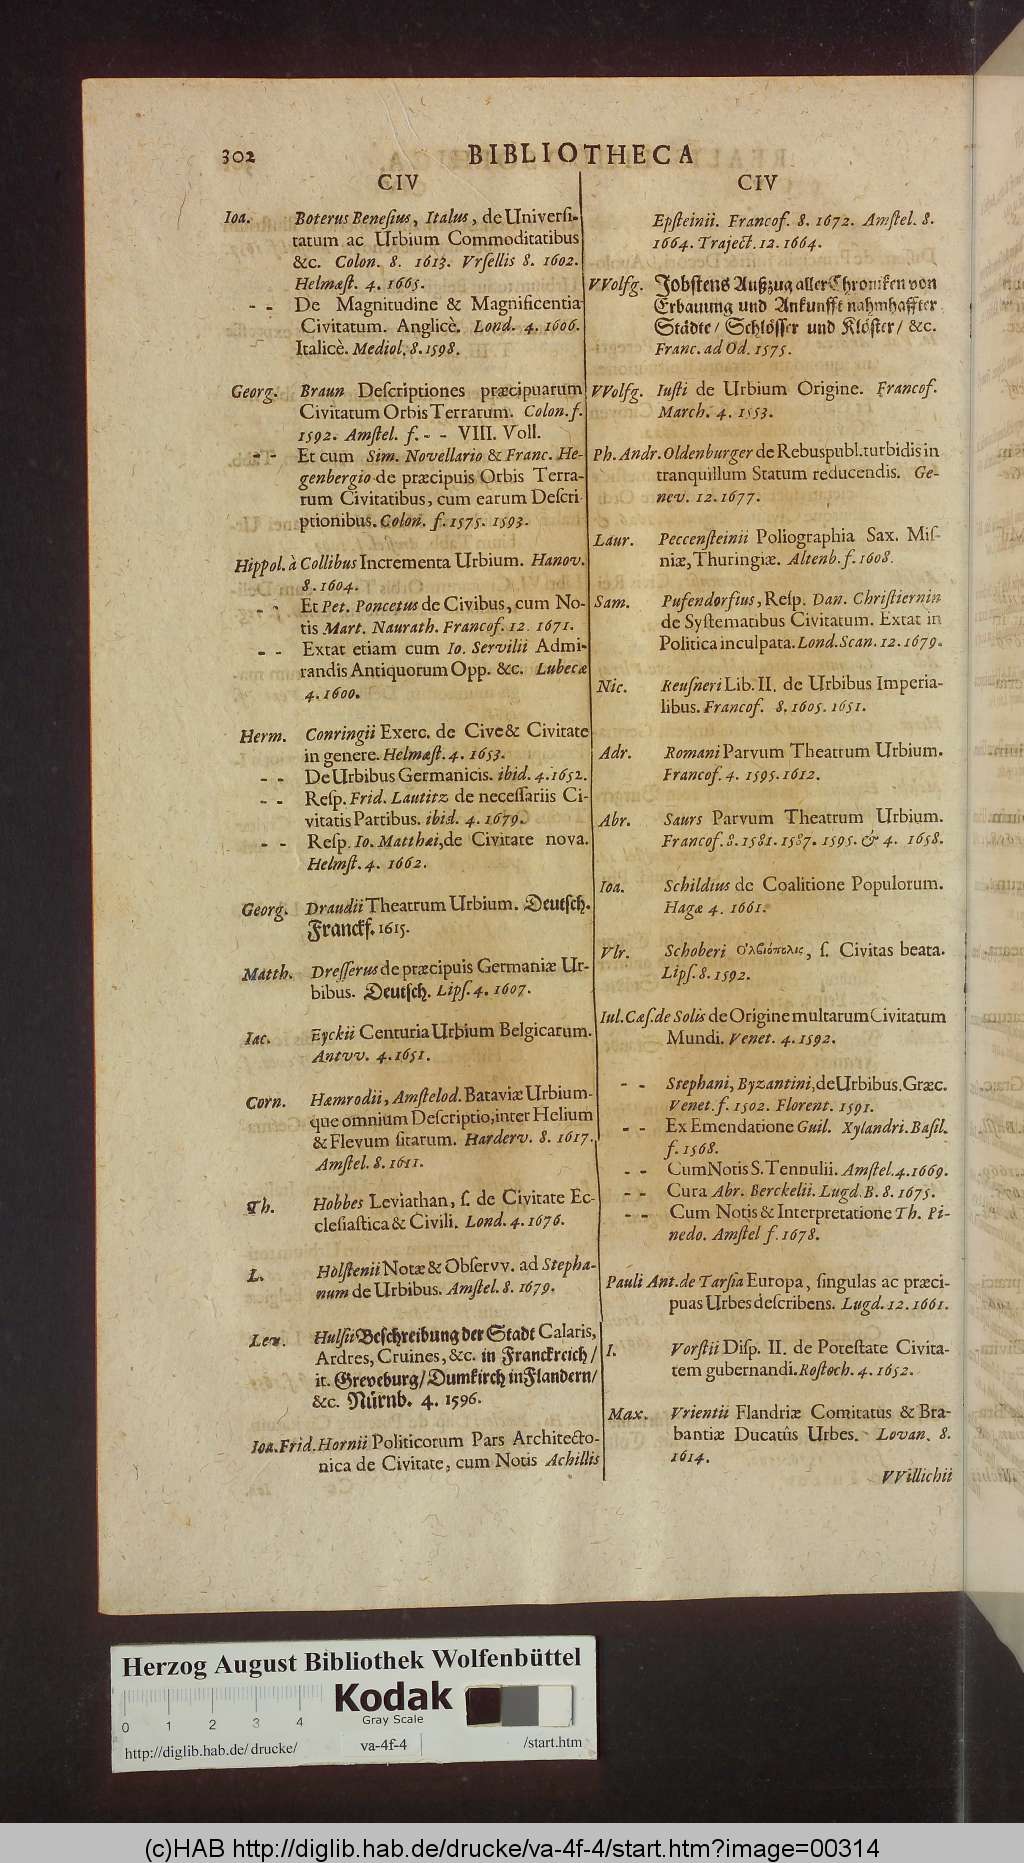 302 BIBLIOTHECA
CIV
Ioa. Boterus Benesius, Italus, de Universi-
tatum ac Urbium Commoditatibus
&c. Colon. 8. 1613. Vrsellis 8. 1602.
Helmæst. 4. 1665.
- - De Magnitudine & Magnificentia
Civitatum. Anglicè. Lond. 4. 1606.
Italicè. Mediol. 8. 1598.
Georg. Braun Descriptiones præcipuarum
Civitatum Orbis Terrarum. Colon. f.
1592. Amstel. f. - - VIII. Voll.
- - Et cum Sim. Novellario & Franc. Ho-
genbergio de præcipuis Orbis Terra-
rum Civitatibus, cum earum Descri
ptionibus. Colon. f. 1575. 1593.
Hippol. à Collibus Incrementa Urbium. Hanov.
8. 1604.
- - Et Pet. Poncetus de Civibus, cum No-
tis Mart. Naurath. Francof. 12. 1671.
- - Extat etiam cum Io. Servilii Admi-
randis Antiquorum Opp. &c. Lubecæ
4. 1600.
Herm. Conringii Exerc. de Cive & Civitate
in genere. Helmæst. 4. 1653.
- - De Urbibus Germanicis. ibid. 4. 1652.
- - Resp. Frid. Lautitz de necessariis Ci-
vitatis Partibus. ibid. 4. 1679.
- - Resp. Io. Matthæi, de Civitate nova.
Helmst. 4. 1662.
Georg. Draudii Theatrum Urbium. Deutsch.
Franckf. 1615.
Matth. Dresserus de præcipuis Germaniæ Ur-
bibus. Deutsch. Lips. 4. 1607.
Iac. Eyckii Centuria Urbium Belgicarum.
Antvv. 4. 1651.
Corn. Hæmrodii, Amstelod. Bataviæ Urbium-
que omnium Descriptio, inter Helium
& Flevum sitarum. Harderv. 8. 1617.
Amstel. 8. 1611.
Th. Hobbes Leviathan, s. de Civitate Ec-
clesiastica & Civili. Lond. 4. 1676.
L. Holstenii Notæ & Observv. ad Stepha-
num de Urbibus. Amstel. 8. 1679.
Lev. Hulsii Beschreibung der Stadt Calaris,
Ardres, Cruines, &c. in Franckreich /
it. Greveburg / Dumkirch in Flandern /
&c. Nürnb. 4. 1596.
Ioa. Frid. Hornii Politicorum Pars Architecto-
nica de Civitate, cum Notis Achillis
CIV
Epsteinii. Francof. 8. 1672. Amstel. 8.
1664. Traject. 12. 1664.
VVolfg. Jobstens Außzug aller Chroniken von
Erbauung und Ankunfft nahmhaffter
Städte / Schlösser und Klöster / &c.
Franc. ad Od. 1575.
VVolfg. Iusti de Urbium Origine. Francof.
March. 4. 1553.
Ph. Andr. Oldenburger de Rebuspubl. turbidis in
tranquillum Statum reducendis. Ge-
nev. 12. 1677.
Laur. Peccensteinii Poliographia Sax. Mis-
niæ, Thuringiæ. Altenb. f. 1608.
Sam. Pufendorfius, Resp. Dan. Christiernin
de Systematibus Civitatum. Extat in
Politica inculpata. Lond. Scan. 12. 1679.
Nic. Reusneri Lib. II. de Urbibus Imperia-
libus. Francof. 8. 1605. 1651.
Adr. Romani Parvum Theatrum Urbium.
Francof. 4. 1595. 1612.
Abr. Saurs Parvum Theatrum Urbium.
Francof. 8. 1581. 1587. 1595. & 4. 1658.
Ioa. Schildius de Coalitione Populorum.
Hagæ 4. 1661.
Vlr. Schoberi Ὀλβιόπολις, s. Civitas beata.
Lips. 8. 1592.
Iul. Cæs. de Solis de Origine multarum Civitatum
Mundi. Venet. 4. 1592.
- - Stephani, Byzantini, de Urbibus. Græc.
Venet. f. 1502. Florent. 1591.
- - Ex Emendatione Guil. Xylandri. Basil.
f. 1568.
- - Cum Notis S. Tennulii. Amstel. 4. 1669.
- - Cura Abr. Berckelii. Lugd. B. 8. 1675.
- - Cum Notis & Interpretatione Th. Pi-
nedo. Amstel f. 1678.
Pauli Ant. de Tarsia Europa, singulas ac præci-
puas Urbes describens. Lugd. 12. 1661.
I. Vorstii Disp. II. de Potestate Civita-
tem gubernandi. Rostoch. 4. 1652.
Max. Vrientii Flandriæ Comitatus & Bra-
bantiæ Ducatûs Urbes. Lovan. 8.
1614.
VVillichii
Herzog August Bibliothek Wolfenbüttel
0 1 2 3 4
Kodak
Gray Scale
http://diglib.hab.de/ drucke/ va-4f-4 /start.htm
(c)HAB http://diglib.hab.de/drucke/va-4f-4/start.htm?image=00314